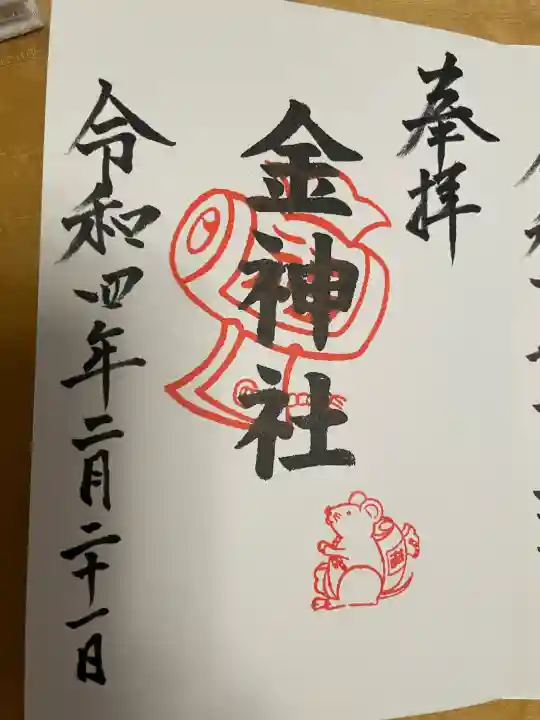 奉拝
金神社
令和四年二月二十一日